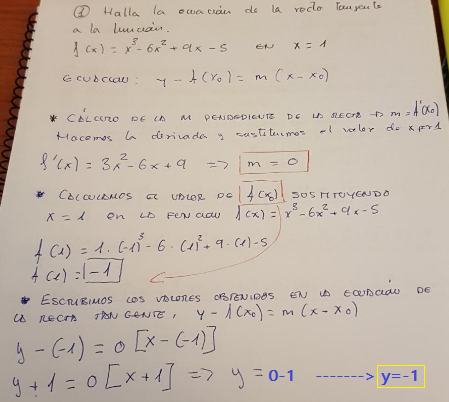 ① Halla la ecuación de la recta tangente
a la función.
f(x) = x³-6x²+9x-5 EN x=1
ECUACION: y - f(x₀) = m(x-x₀)
* CÁLCULO DE LA M PENDIENTE DE LA RECTA → m=f'(x₀)
Hacemos la derivada y sustituimos el valor de x por 1
f'(x) = 3x²-6x+9 => m=0
* CALCULAMOS EL VALOR DE f(x₀) SUSTITUYENDO
x=1 en LA FUNCION f(x)=x³-6x²+9x-5
f(1) = 1·(-1)³-6·(1)²+9·(1)-5
f(1)=-1
* ESCRIBIMOS LOS VALORES OBTENIDOS EN LA ECUACIÓN DE
LA RECTA TANGENTE, y - f(x₀)=m(x-x₀)
y-(-1) = 0[x-(-1)]
y+1=0[x+1] => y = 0-1 -------> y=-1